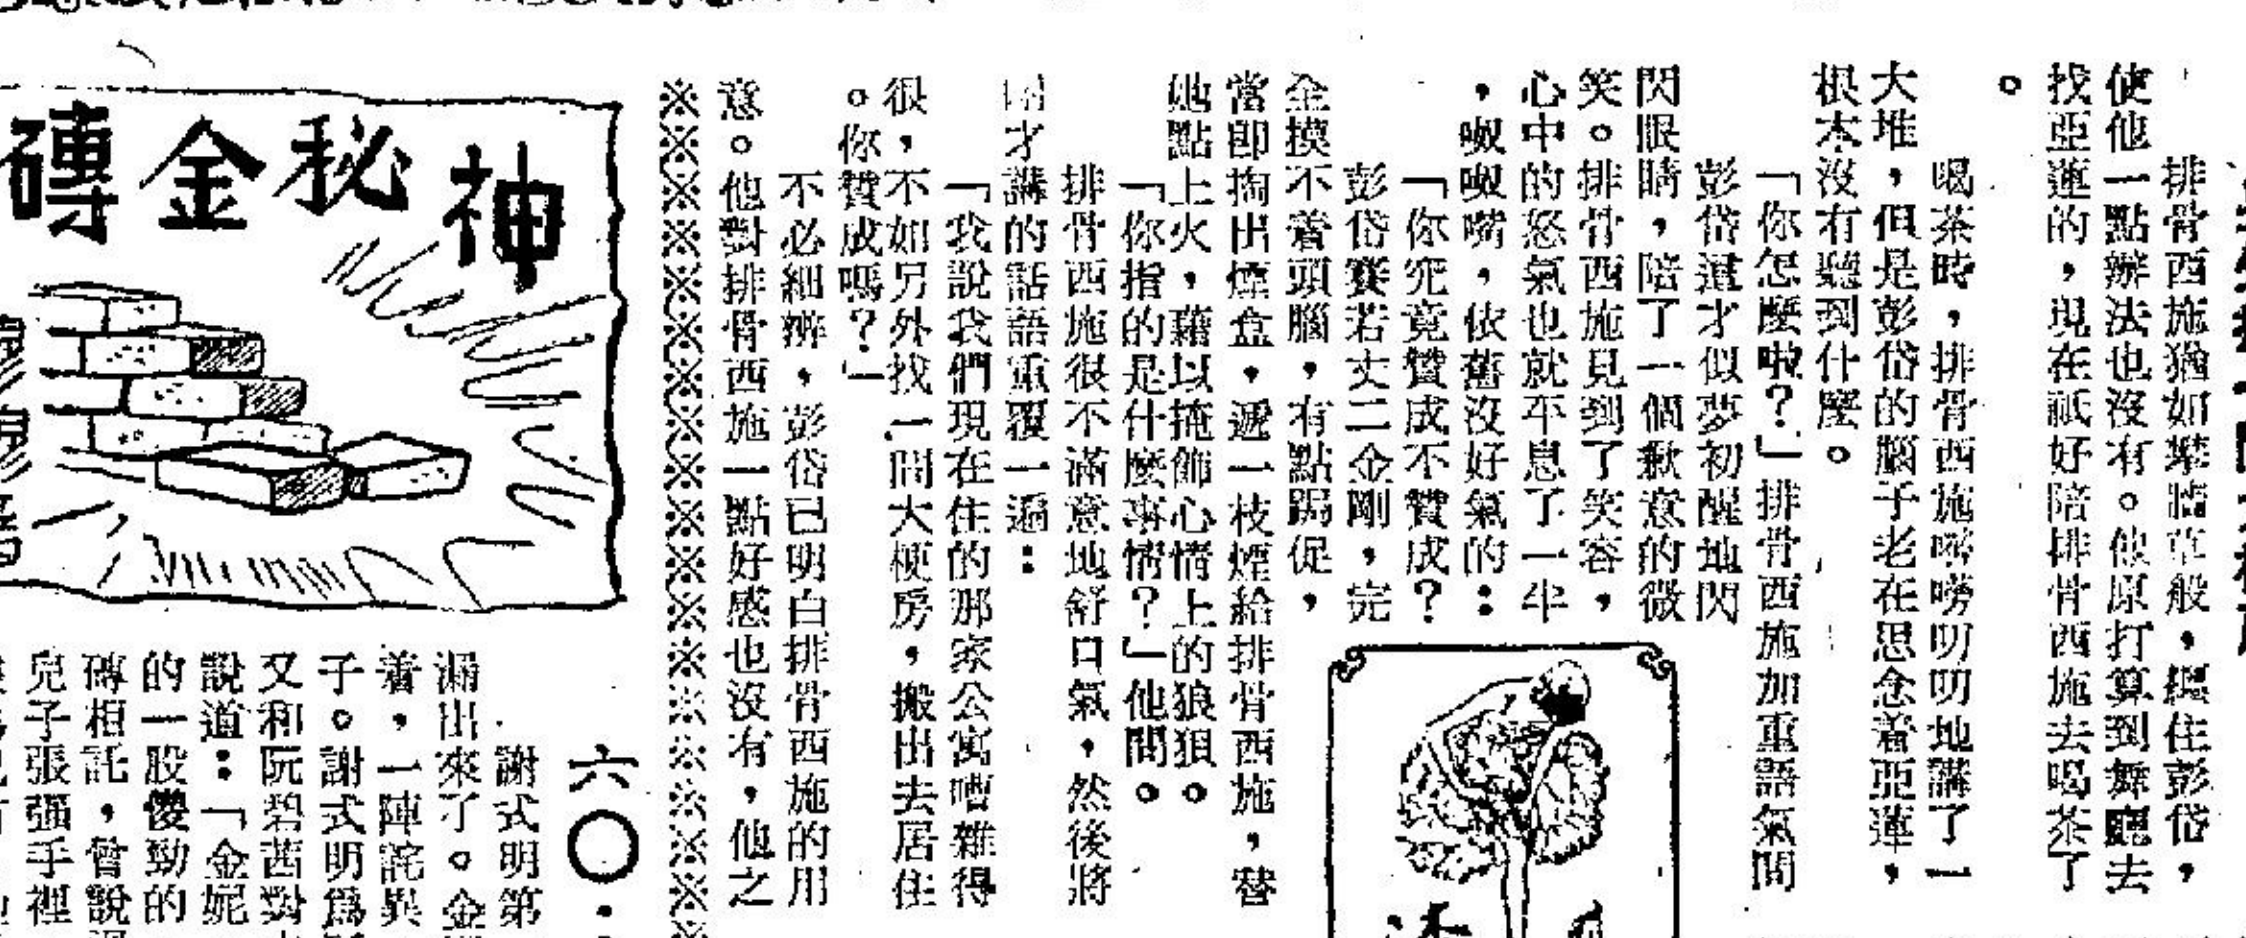 排骨西施猶如攀牆草般，纒住彭岱，
使他一點辦法也沒有。他原打算到舞廳去
找亞蓮的，現在祇好陪排骨西施去喝茶了
。
喝茶時，排骨西施嘮嘮叨叨地講了一
大堆，但是彭岱的腦子老在思念着亞蓮，
根本沒有聽到什麼。
「你怎麼啦？」排骨西施加重語氣問
彭岱這才似夢初醒地閃
閃眼睛，陪了一個歉意的微
笑。排骨西施見到了笑容，
心中的怒氣也就平息了一半
，呶呶嘴，依舊沒好氣的：
「你究竟贊成不贊成？
彭岱賽若丈二金剛，完
全摸不着頭腦，有點跼促，
當即掏出煙盒，遞一枝煙給排骨西施，替
她點上火，藉以掩飾心情上的狼狽。
「你指的是什麼事情？」他問。
排骨西施很不滿意地舒口氣，然後將
剛才講的話語重覆一遍：
「我說我們現在住的那家公寓嘈雜得
很，不如另外找一間大梗房，搬出去居住
。你贊成嗎？」
不必細辨，彭岱已明白排骨西施的用
意。他對排骨西施一點好感也沒有，他之
神秘金磚
六〇
謝式明第
漏出來了。金
着，一陣詫異
子。謝式明爲
又和阮碧茜對
說道：「金妮
的一股傻勁的
磚相託，曾說
兒子張强手裡